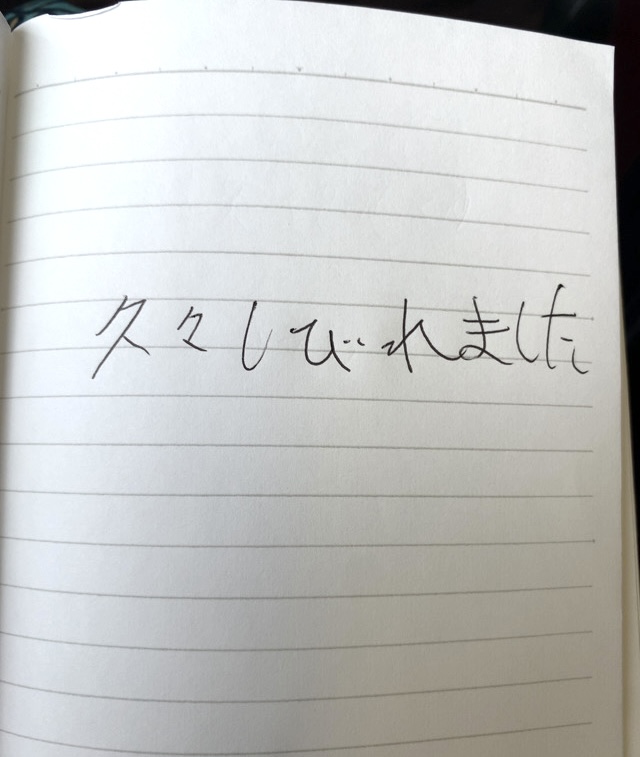 久々しびれました